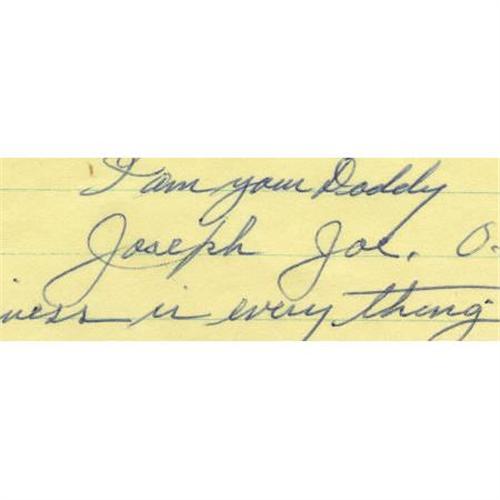 I am your Daddy
Joseph Joe. O
iness is everything